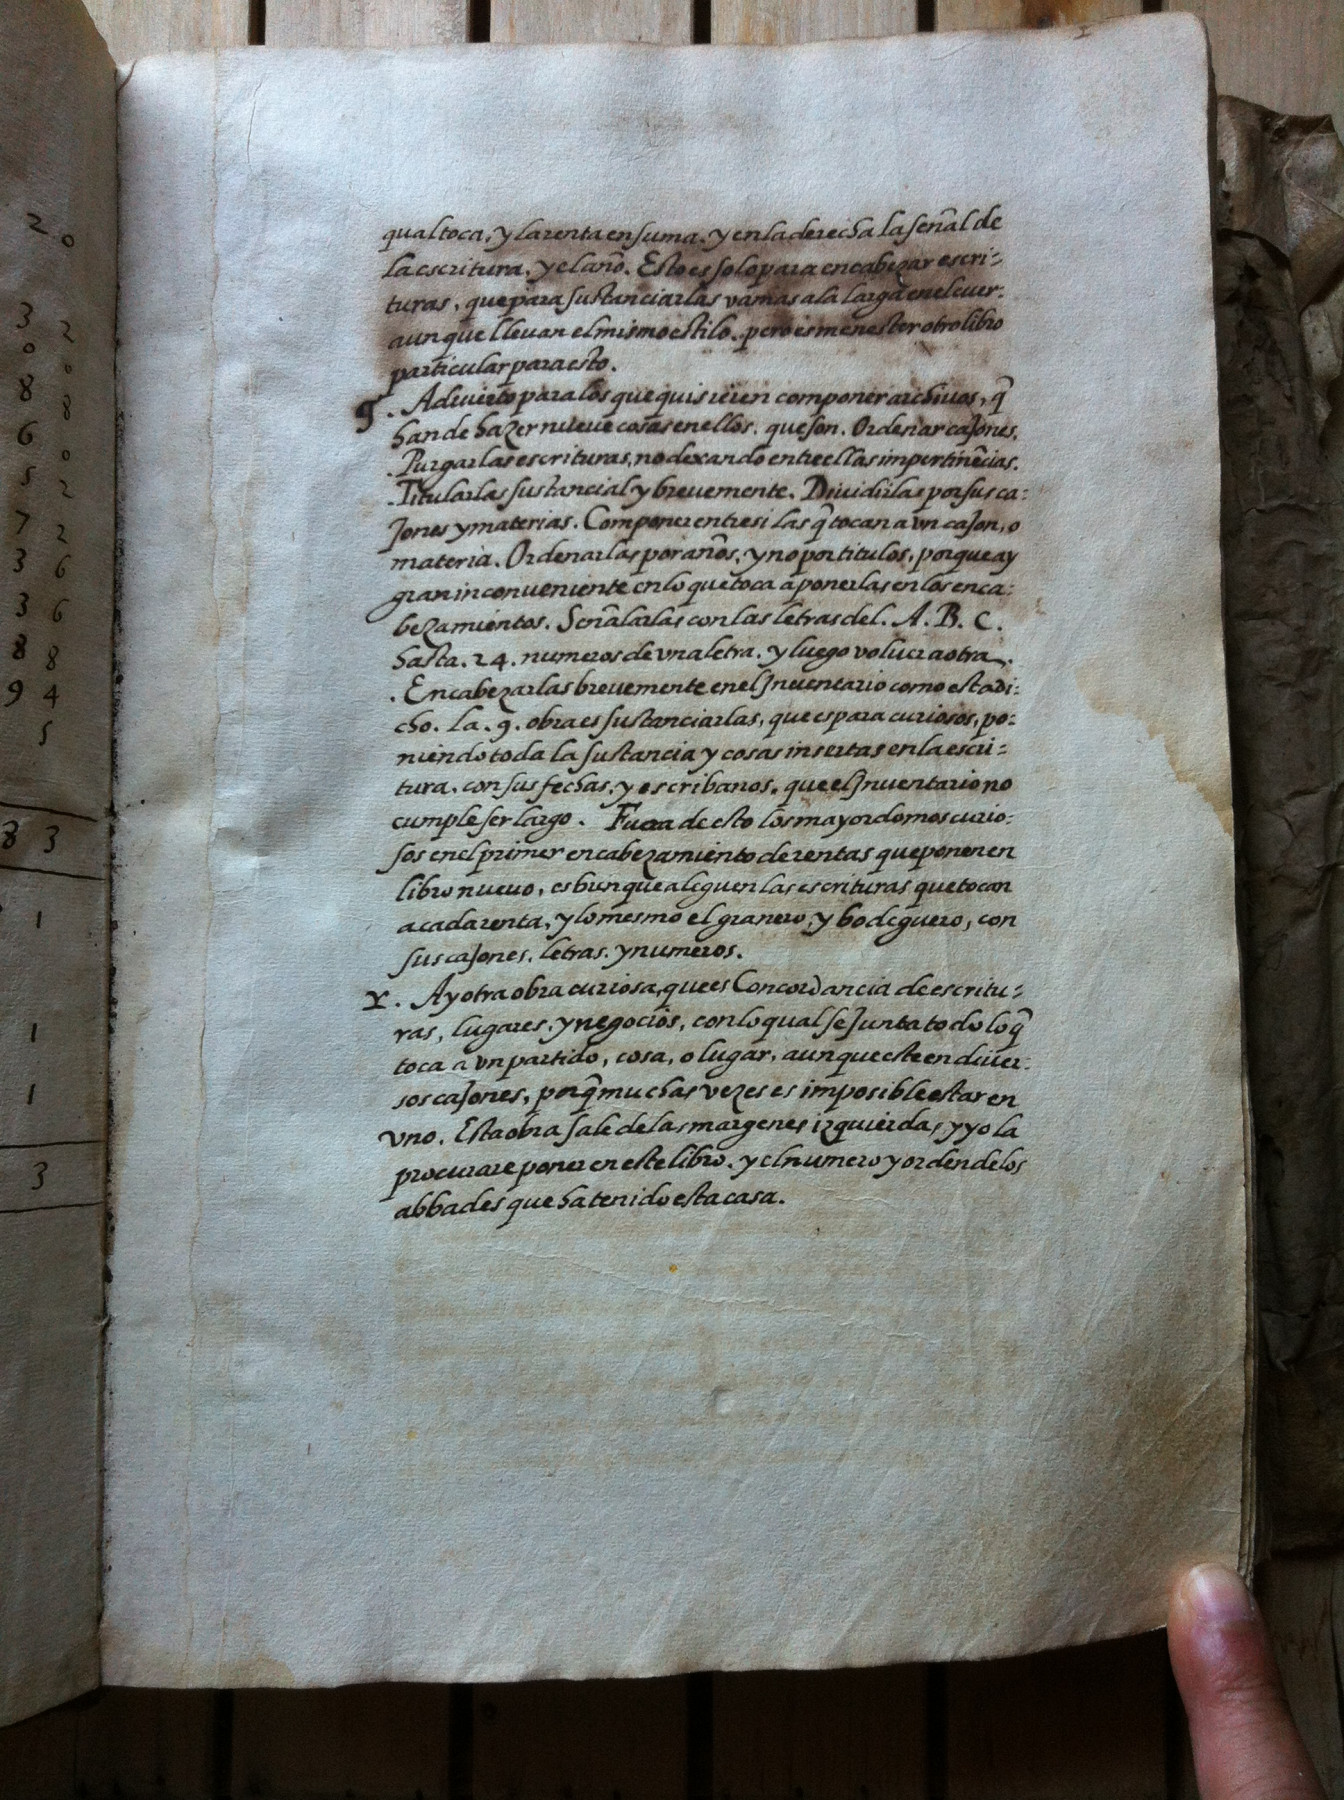 2 0
3 2
0 0
8 8
6 0
5 2
7 2
3 6
3 6
8 8
9 4
5
8 3
1
1
1
3
qual toca, y la renta en suma. y en la derecha la señal de
la escritura. y el año. Esto es solo para encabezar escri-
turas, que para sustanciarlas vamas a la larga en el cuer.
aunque llevan el mismo estilo. pero es menester otro libro
particular para esto.
9. Advierto para los que quisieren componer archivos, q̃
han de hazer nueve cosas en ellos. que son. Ordenar caJones.
. Purgar las escrituras, no dexando entre ellas impertinẽcias.
. Titularlas sustancial y brevemente. Dividirlas por sus ca-
Jones y materias. Componer entre si las q̃ tocan a vn caJon, o
materia. Ordenarlas por años, y no por titulos, porque ay
gran inconueniente en lo que toca a ponerlas en los enca-
bezamientos. Señalarlas con las letras del. A. B. C.
hasta. 24. numeros de vna letra. y luego volver a otra.
. Encabezarlas brevemente en el Jnventario como esta di-
cho. La. 9. obra es sustanciarlas, que es para curiosos, po-
niendo toda la sustancia y cosas insertas en la escri-
tura. con sus fechas, y escribanos. que el Jnventario no
cumple ser largo. Fuera de esto los mayordomos curio-
sos en el primer encabezamiento de rentas que ponen en
libro nuevo, es bien que aleguen las escrituras que tocan
a cada renta, y lo mesmo el granero, y bodeguero, con
sus caJones. letras. y numeros.
. Ay otra obra curiosa, que es Concordancia de escritu-
ras, lugares, y negocios, con lo qual se Junta todo lo q̃
toca a vn partido, cosa, o lugar, aunque este en diver-
sos caJones, porq̃ muchas vezes es imposible estar en
vno. Esta obra sale de las margenes izquierdas, y yo la
procurare poner en este libro. y el numero y orden de los
abbades que ha tenido esta casa.